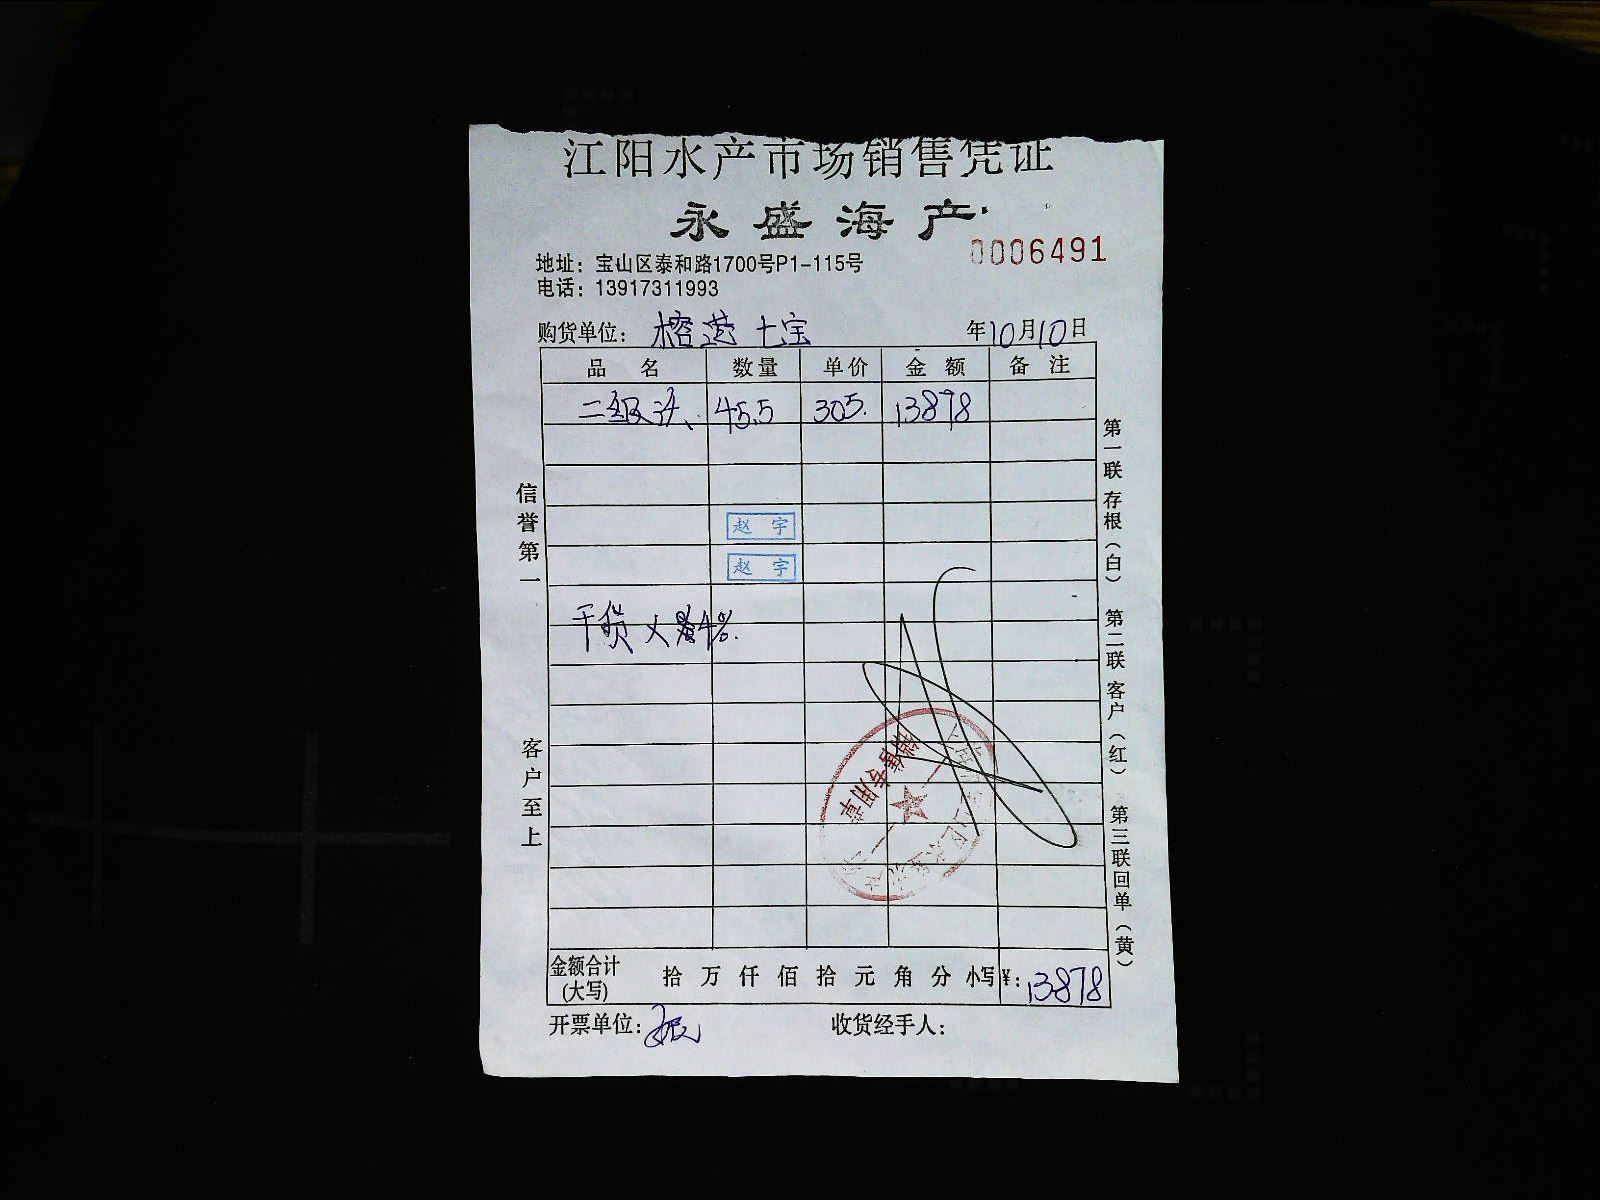 江阳水产市场销售凭证
永盛海产
0006491
地址：宝山区泰和路1700号P1-115号
电话：13917311993
购货单位：榕港 七宝 年10月10日
品名 数量 单价 金额 备注
二级 45.5 305. 13878
赵宇
赵宇
干货 4%.
销售专用章
金额合计(大写) 拾万仟佰拾元角分 小写¥：13878
开票单位： 收货经手人：
信誉第一
客户至上
第一联存根（白）
第二联客户（红）
第三联回单（黄）